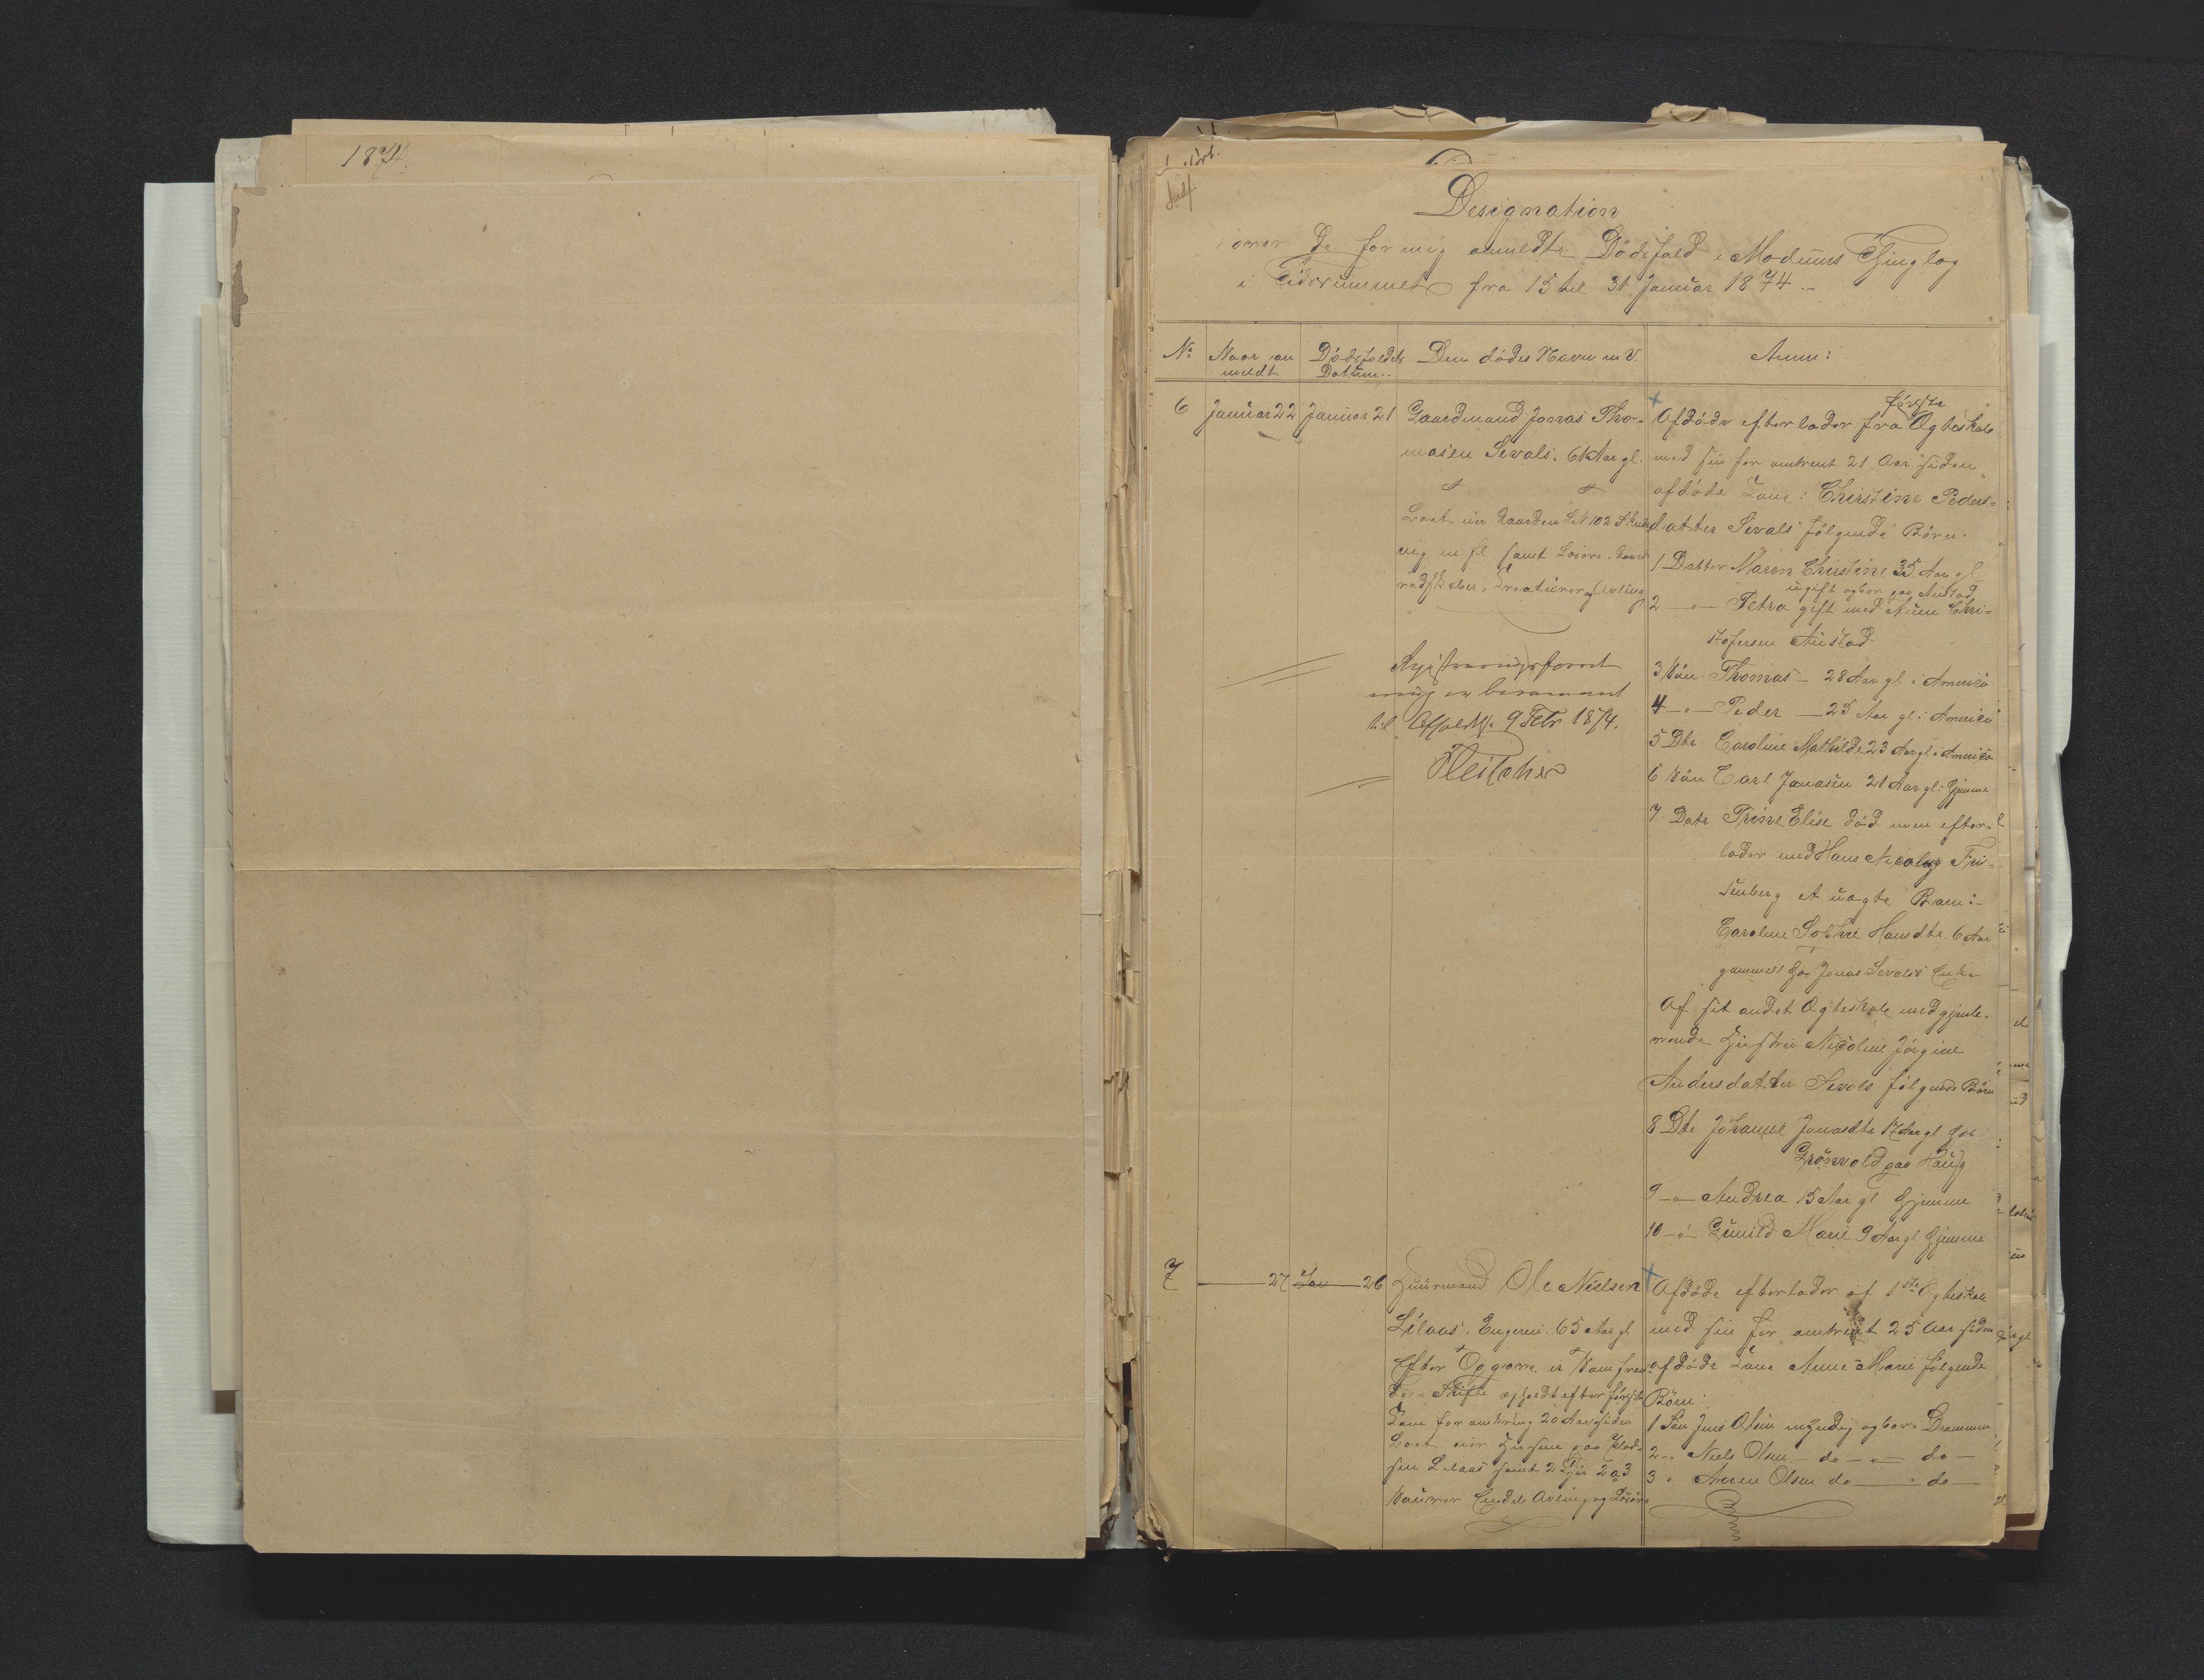 1874.
Designation
over de for mig anmeldte Dødsfald i Modums Thinglag
i Tidsrummet fra 15 til 31 Januar 1874.-
No
Naar an
meldt
Dødsfaldets
Datum..
Den dødes Navn m V.
Anm:
6
Januar 22
Januar 21
Gaardmand Jonas Tho-
masen Sevals. 61 Aar gl.
Boet eier Gaarden LN 102
vig m. fl samt Løsøre. Gaards
redskaber, Creaturer og Avling
Registreringsforret
ning er berammet
til Afholdelse 9 Febr 1874.
første
Afdøde efterlader fra Ægteskab
med sin for omtrent 21 Aar siden
afdøde Kone: Christine Peders-
datter Sevals følgende Børn.
1 Datter Maren Christine 35 Aar gl
ugift og bor paa Austad
2 -"- Petra gift med Anen Chri-
stofersen Austad
3 Søn Thomas - 28 Aar gl i America
4 -"- Peder - 25 Aar gl i America
5 Dtr Caroline Mathilde 23 Aar gl i America
6 Søn Carl Jonasen 21 Aar gl: Hjemme
7 Datr Trine Elise død men efter-
lader med Hans Nicolay Fri-
senberg et uægte Barn:-
Caroline Sophie Hansdtr. 6 Aar
gammel hos Jonas Sevals's Enke
Af sit andet Ægteskab med gjenle-
vende Hustru Nicoline Jørgine
Andersdatter Sevals følgende Børn
8 Dtr Johanne Jonasdtr 17 Aar gl hos
Grønvold paa Haug
9 -"- Andrea 15 Aar gl Hjemme
10 -"- Gunild Marie 9 Aar gl Hjemme
7
27
Jan 26
Huusmand Ole Nielsen
Lilaas. Eugerne. 65 Aar gl
Efter Opgave er Sam fræn
de-Skifte afholdt efter første
Kone for omkring 20 Aar siden
Boet eier Husene paa Plad-
sen Lilaas samt 2 Kjør 2 a 3
Sauer en Endel Avling og Løsøre
Afdøde efterlader af 1ste Ægteskab
med sin for omtrent 25 Aar siden
afdøde Kone Anne Marie følgende
Børn:
1 Søn Jens Olsen myndig og bor i Drammen
2 -"- Niels Olsen - do -"- do -
3 " Anen Olsen do - " do -